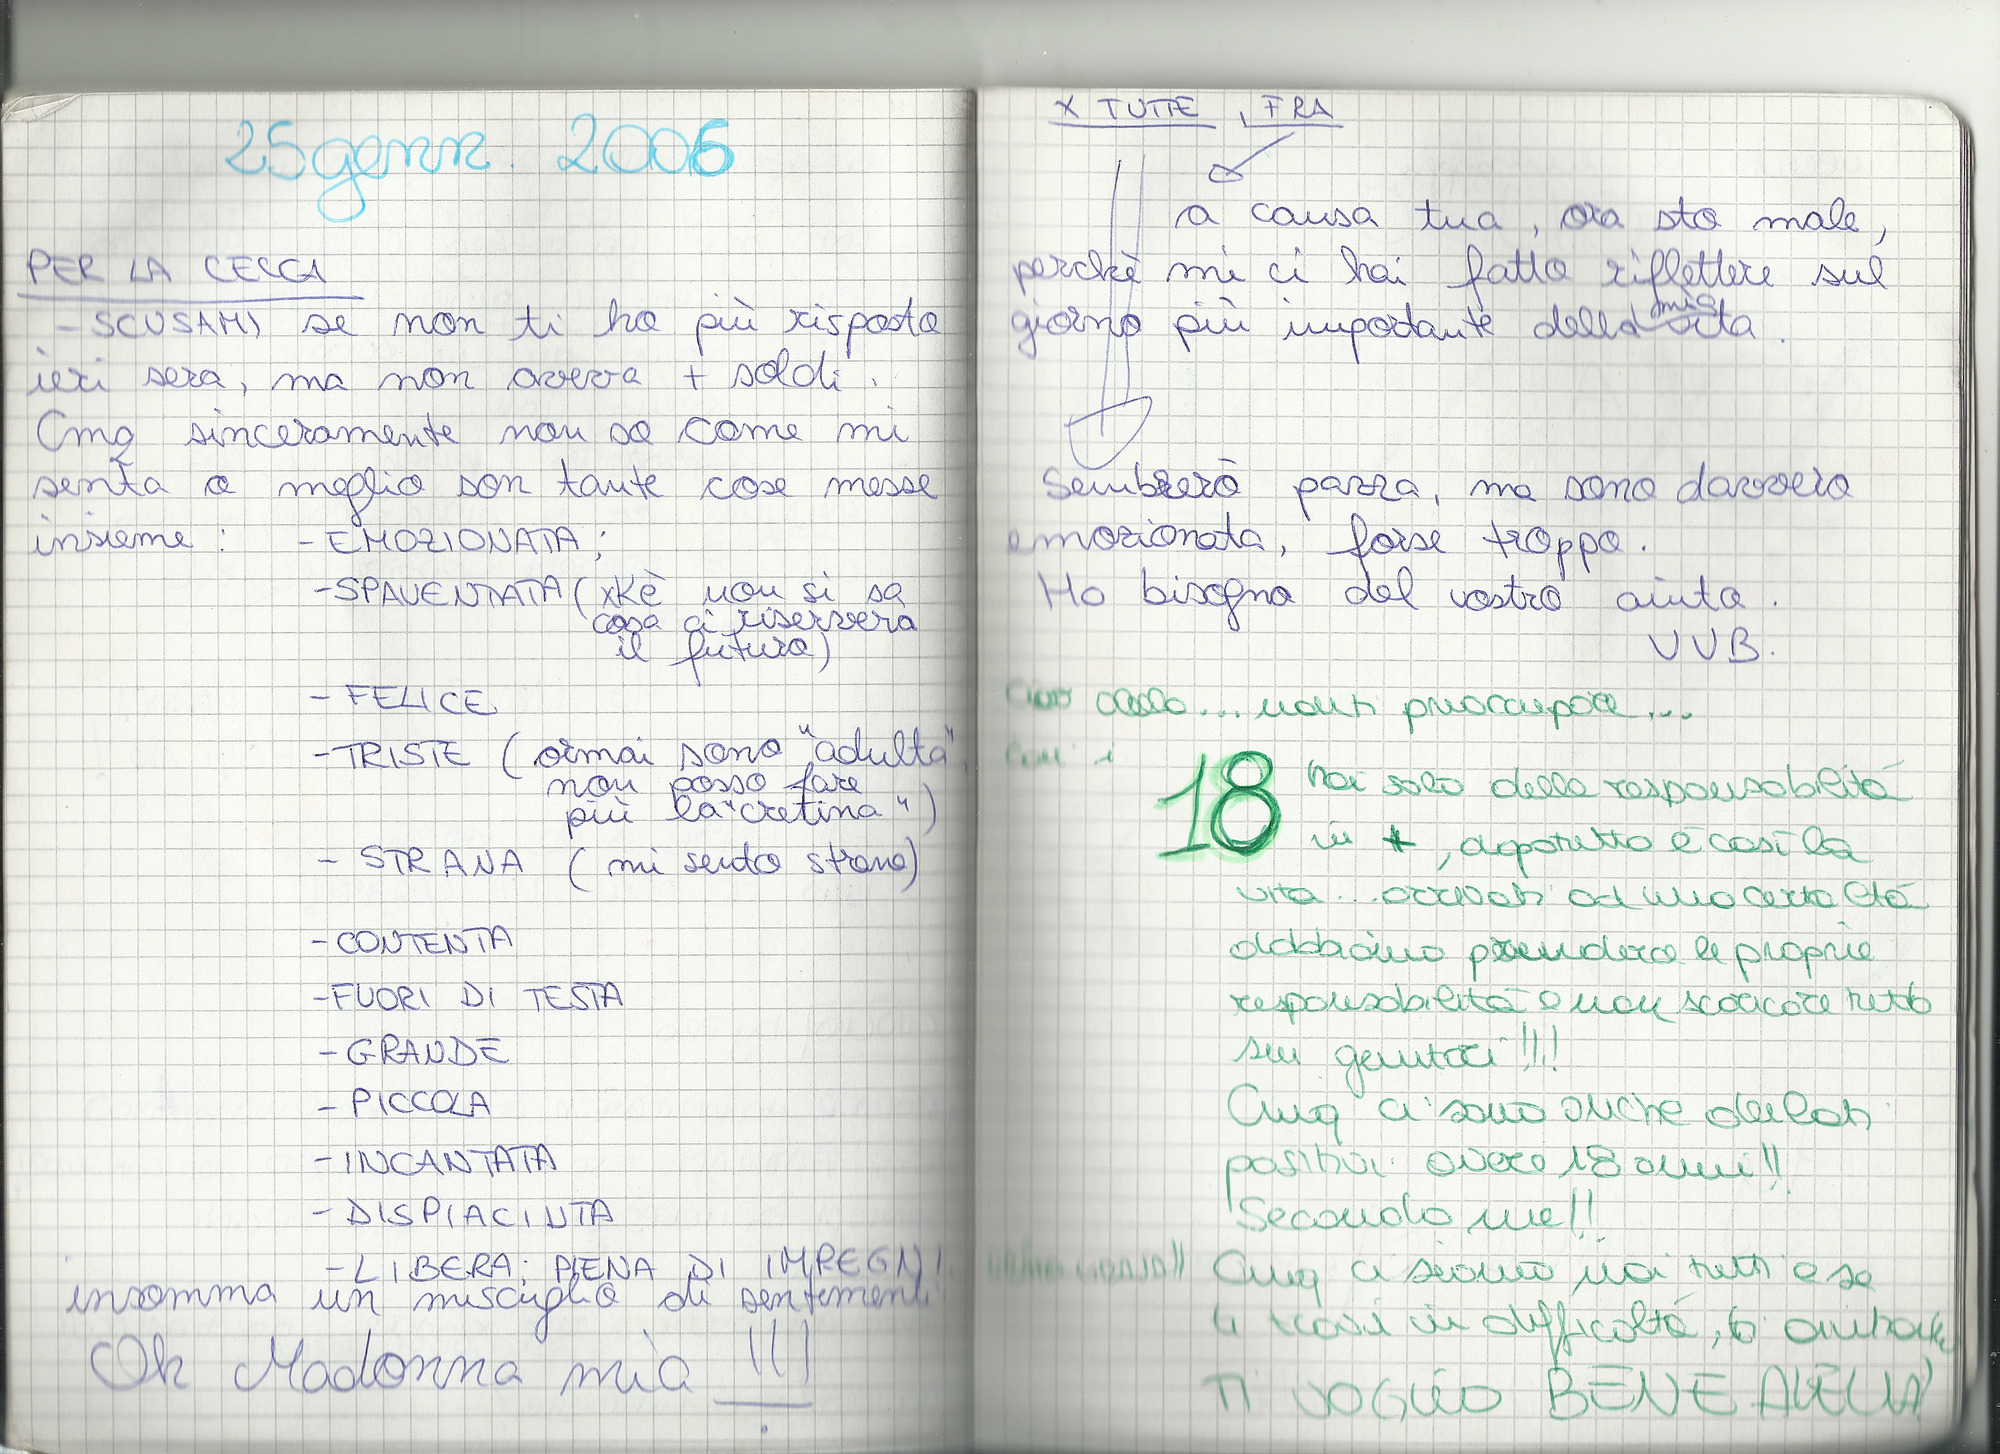 25 genn. 2006
PER LA CECCA
- SCUSAMI se non ti ho più risposto
ieri sera, ma non avevo + soldi.
Cmq sinceramente non so come mi
sento o meglio son tante cose messe
insieme: - EMOZIONATA;
- SPAVENTATA (xKè non si sa
cosa ci riserverà
il futuro)
- FELICE
- TRISTE (ormai sono "adulta",
non posso fare
più la "cretina")
- STRANA (mi sento strana)
- CONTENTA
- FUORI DI TESTA
- GRANDE
- PICCOLA
- INCANTATA
- DISPIACIUTA
- LIBERA; PIENA DI IMPEGNI
insomma un miscuglio di sentimenti
Oh Madonna mia !!!
X TUTTE, FRA
a causa tua, ora sto male,
perchè mi ci hai fatto riflettere sul
giorno più importante della mia vita.
Sembrerò pazza, ma sono davvero
emozionata, forse troppo.
Ho bisogno del vostro aiuto.
VVB.
... non ti preoccupare...
18 hai solo delle responsabilità
in +, dopotutto è così la
vita... arrivati ad una certa età
dobbiamo prendere le proprie
responsabilità e non scaricare tutto
sui genitori!!!
Cmq ci sono anche dei lati
positivi avere 18 anni!!
Secondo me!!
Cmq ci siamo noi tutti e se
ti trovi in difficoltà, ti
TI VOGLIO BENE